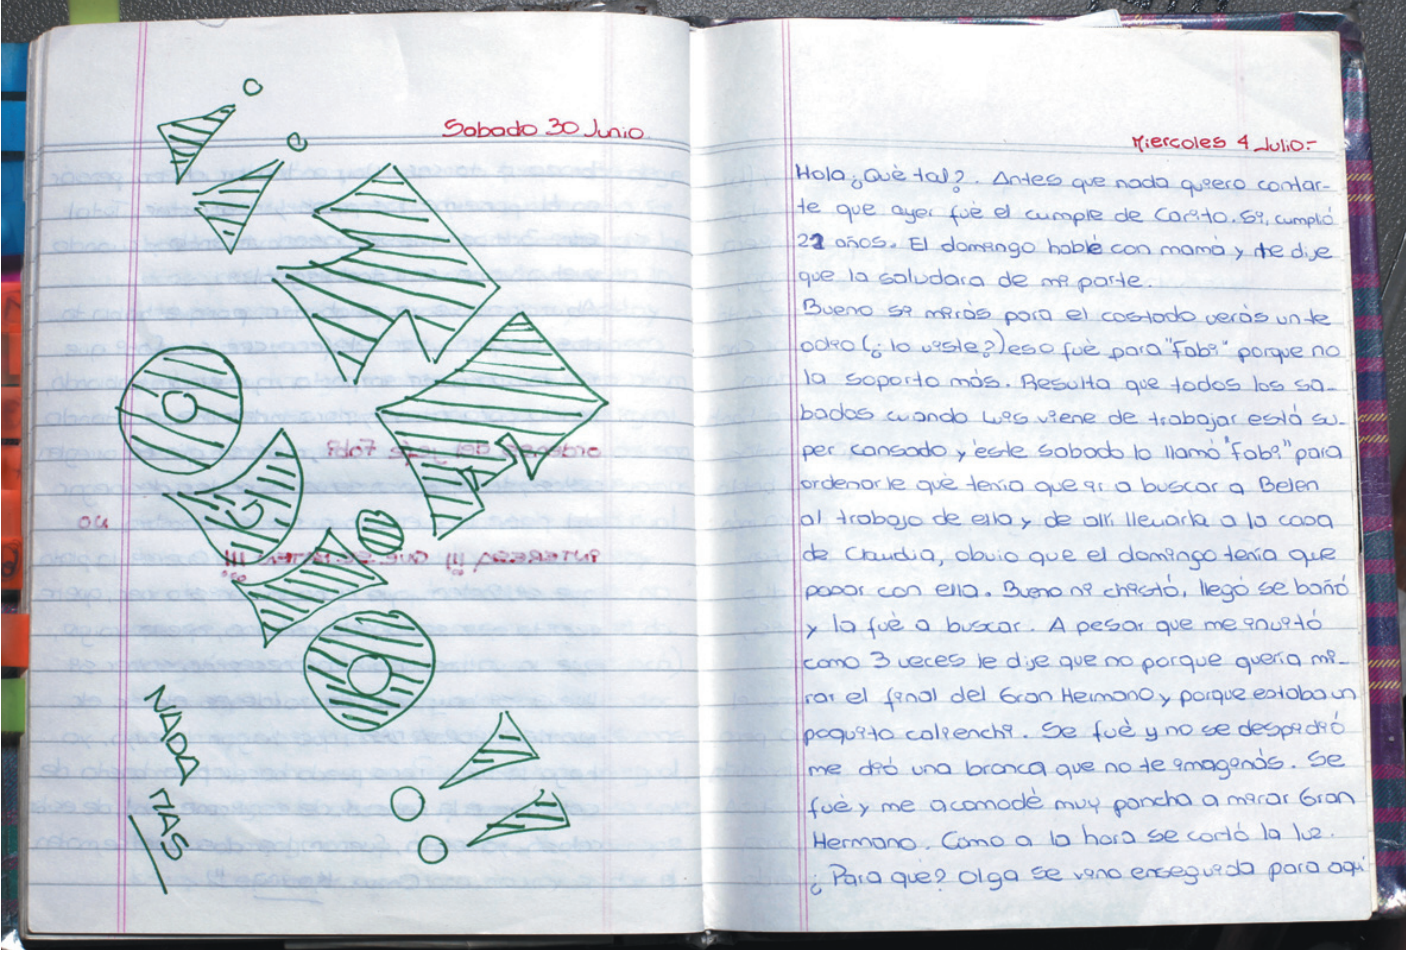 Sabado 30 Junio
NADA MAS
Miercoles 4 Julio-
Hola ¿Qué tal?. Antes que nada quiero contar-
te que ayer fué el cumple de Carito. Si, cumplió
22 años. El domingo hablé con mamá y le dije
que la saludara de mi parte.
Bueno si mirás para el costado verás un te
odio (¿lo viste?) eso fué para "Fabi" porque no
la soporto más. Resulta que todos los sa-
bados cuando Luis viene de trabajar está su-
per cansado y éste sabado lo llamó "Fabi" para
ordenarle qué tenia que ir a buscar a Belen
al trabajo de ella y de allí llevarla a la casa
de Claudia, obvio que el domingo tenía que
pasar con ella. Bueno ni chistó, llegó se bañó
y la fué a buscar. A pesar que me invitó
como 3 veces le dije que no porque quería mi-
rar el final del Gran Hermano y porque estaba un
poquito calienchi. Se fué y no se despidió
me dió una bronca que no te imaginás. Se
fué y me acomodé muy pancha a mirar Gran
Hermano. Como a la hora se cortó la luz.
¿Para qué? Olga se vino enseguida para aquí